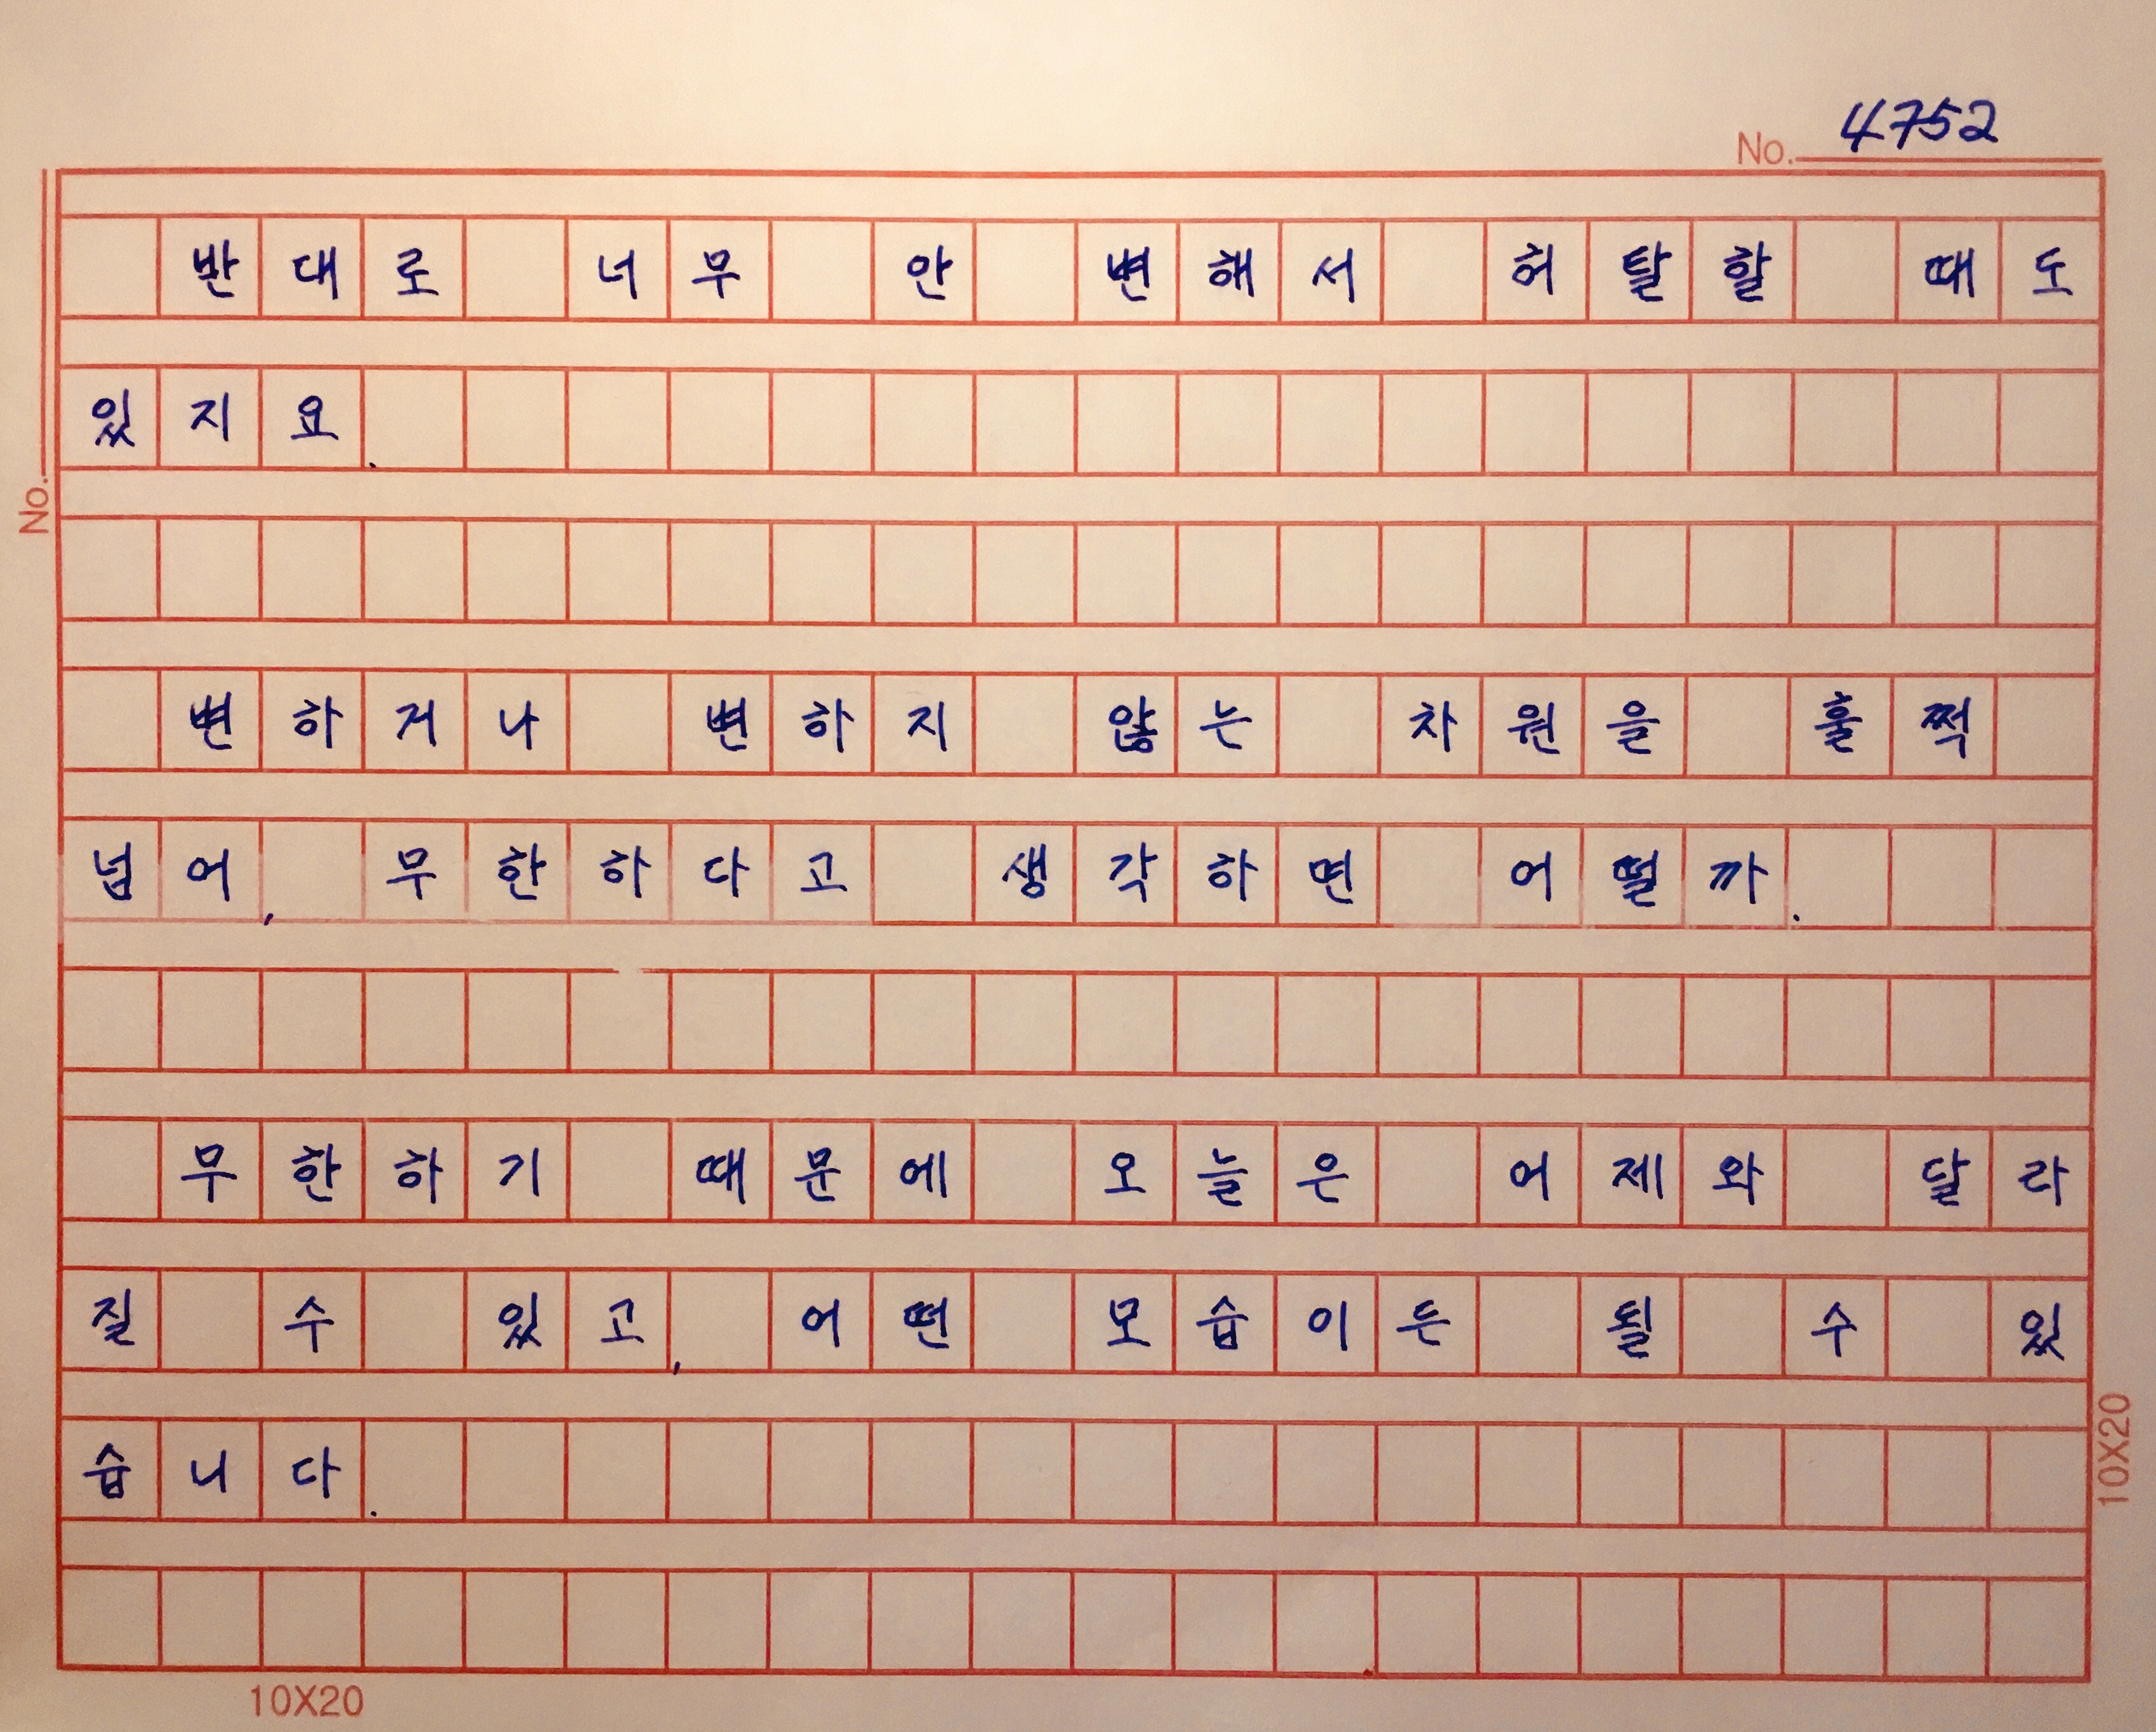 No. 4752
반대로 너무 안 변해서 허탈할 때도
있지요.
No.
변하거나 변하지 않는 차원을 훌쩍
넘어, 무한하다고 생각하면 어떨까.
무한하기 때문에 오늘은 어제와 달라
질 수 있고, 어떤 모습이든 될 수 있
습니다.
10X20
10X20